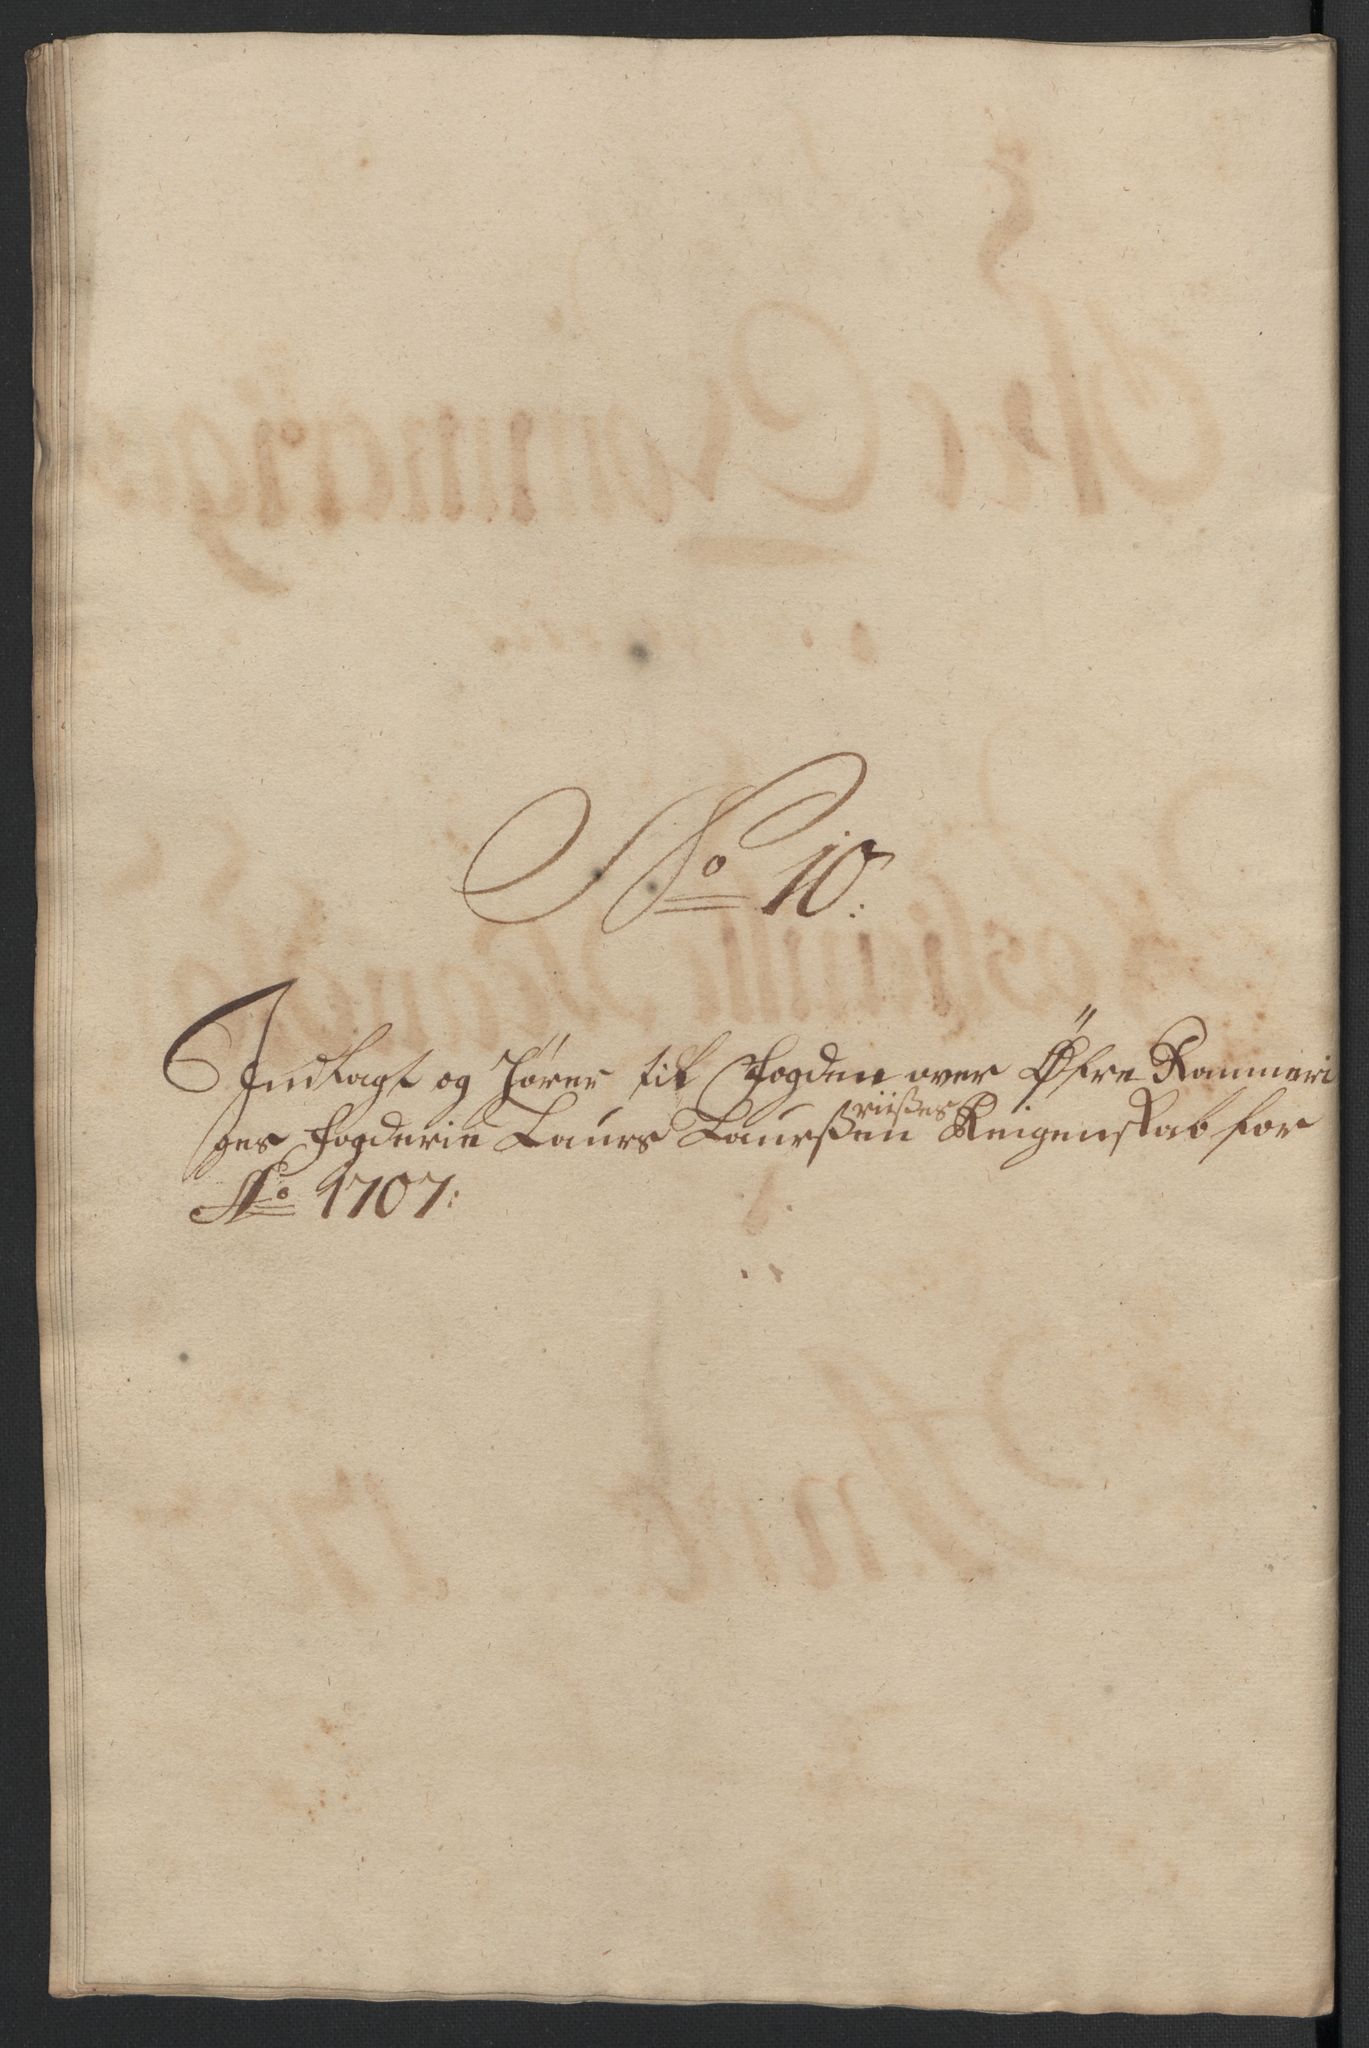 No 10:
Indlagt og hører til Fogden over Øfre Rommeri
ges Fogderie Laurs Laurßen riißes Reigenskab for
Ao 1707: